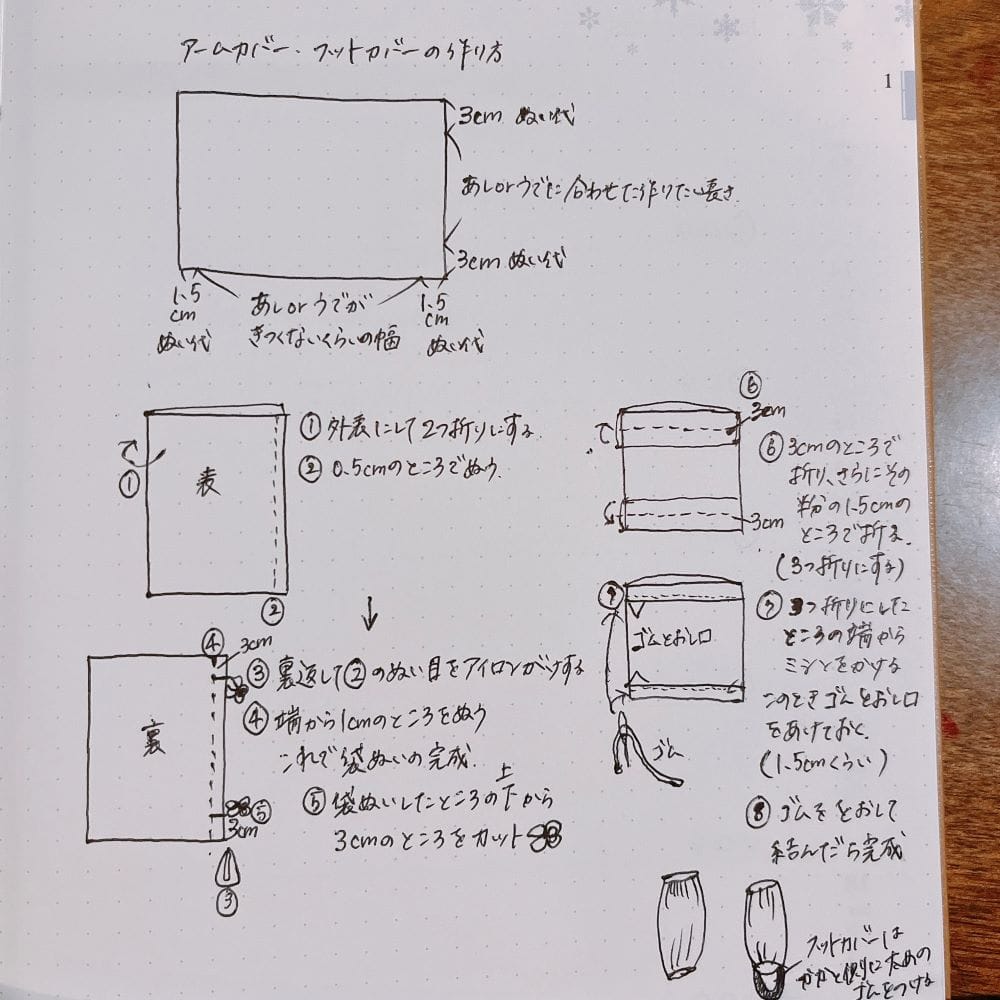 アームカバー・フットカバーの作り方
1
3cm ぬい代
あしorうでに合わせた作りたい長さ
3cm ぬい代
1.5
cm
ぬい代
あしorうでが
きつくないくらいの幅
1.5
cm
ぬい代
① 表 ②
① 外表にして2つ折りにする
② 0.5cmのところでぬう
④ 3cm
裏
⑤
3cm
③
③ 裏返して②のぬい目をアイロンがけする
④ 端から1cmのところをぬう
これで袋ぬいの完成
⑤ 袋ぬいしたところの上下から
3cmのところをカット
⑥
3cm
3cm
⑥ 3cmのところで
折り、さらにその
半分の1.5cmの
ところで折る
(3つ折りにする)
⑦
ゴムとおし口
ゴム
⑦ 3つ折りにした
ところの端から
ミシンをかける
このときゴムとおし口
をあけておく
(1.5cmくらい)
⑧ ゴムをとおして
結んだら完成
フットカバーは
かかと側に太めの
ゴムをつける